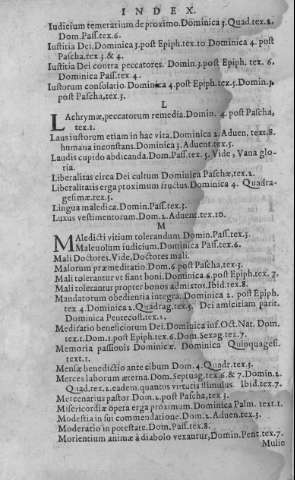 INDEX.
Iudicium temerarium de proximo. Dominica 3. Quad. tex. 2.
Dom. Pass. tex. 6.
Iustitia Dei. Dominica 3. post Epiph. tex. 10 Dominica 4. post
Pascha. tex. 3. & 4.
Iustitia Dei contra peccatores. Domin. 3. post Epiph. tex. 6.
Dominica Pass. tex. 4.
Iustorum consolatio. Dominica 4. post Epiph. tex. 5. Domin. 3.
post Pascha, tex. 3.
L
LAchrymæ, peccatorum remedia. Domin. 4. post Pascha,
tex. 1.
Laus iustorem etiam in hac vita. Dominica 2. Aduen. text. 8.
humana inconstans. Dominica 3. Aduent. tex. 5.
Laudis cupido abdicanda. Dom. Pass. tex. 5. Vide, Vana glo-
ria.
Liberalitas circa Dei cultum Dominica Paschæ, tex. 2.
Liberalitatis erga proximum fructus. Dominica 4. Quadra-
gesimæ. tex. 5.
Lingua maledica. Domin. Pass. tex. 5.
Luxus vestimentorum. Dom. 2. Aduent. tex. 10.
M
MAledicti vitium tolerandum Domin. Pass. tex. 5.
Maleuolum iudicium. Dominica Pass. tex. 6.
Mali Doctores. Vide, Doctores mali.
Malorum præmeditatio. Dom. 6. post Pascha, tex. 5.
Mali tolerantur vt fiant boni. Dominica 6. post Epiph. tex. 7.
Mali tolerantur propter bonos admixtos. Ibid. tex. 8.
Mandatorum obedientia integra. Dominica 2. post Epiph.
tex 4. Dominica 2. Quadrag. tex. 5. Dei amicitiam parit.
Dominica Pentecost. tex. 1.
Meditatio beneficiorum Dei. Dominica inf. Oct. Nat. Dom.
tex. 1. Dom. 1. post Epiph. tex. 6. Dom. Sexag. tex. 7.
Memoria passionis Dominicæ. Dominica Quinquages.
text. 1.
Mensæ benedictio ante cibum Dom. 4. Quadr. tex. 5.
Merces laborum æterna. Dom. Septuag. tex. 6. & 7. Domin. 2.
Quad. tex. 2. eadem, quantus virtutis stimulus. Ibid. tex. 7.
Mercenarius pastor Dom. 2. post Pascha, tex 3.
Misericordiæ opera erga proximum. Dominica Palm. text. 1.
Modestia in sui commendatione. Dom. 2. Aduen. tex. 3.
Moderatio in potestate. Dom. Pass. tex. 8.
Morientium animæ à diabolo vexantur, Domin. Pent. tex. 7.
Mulie